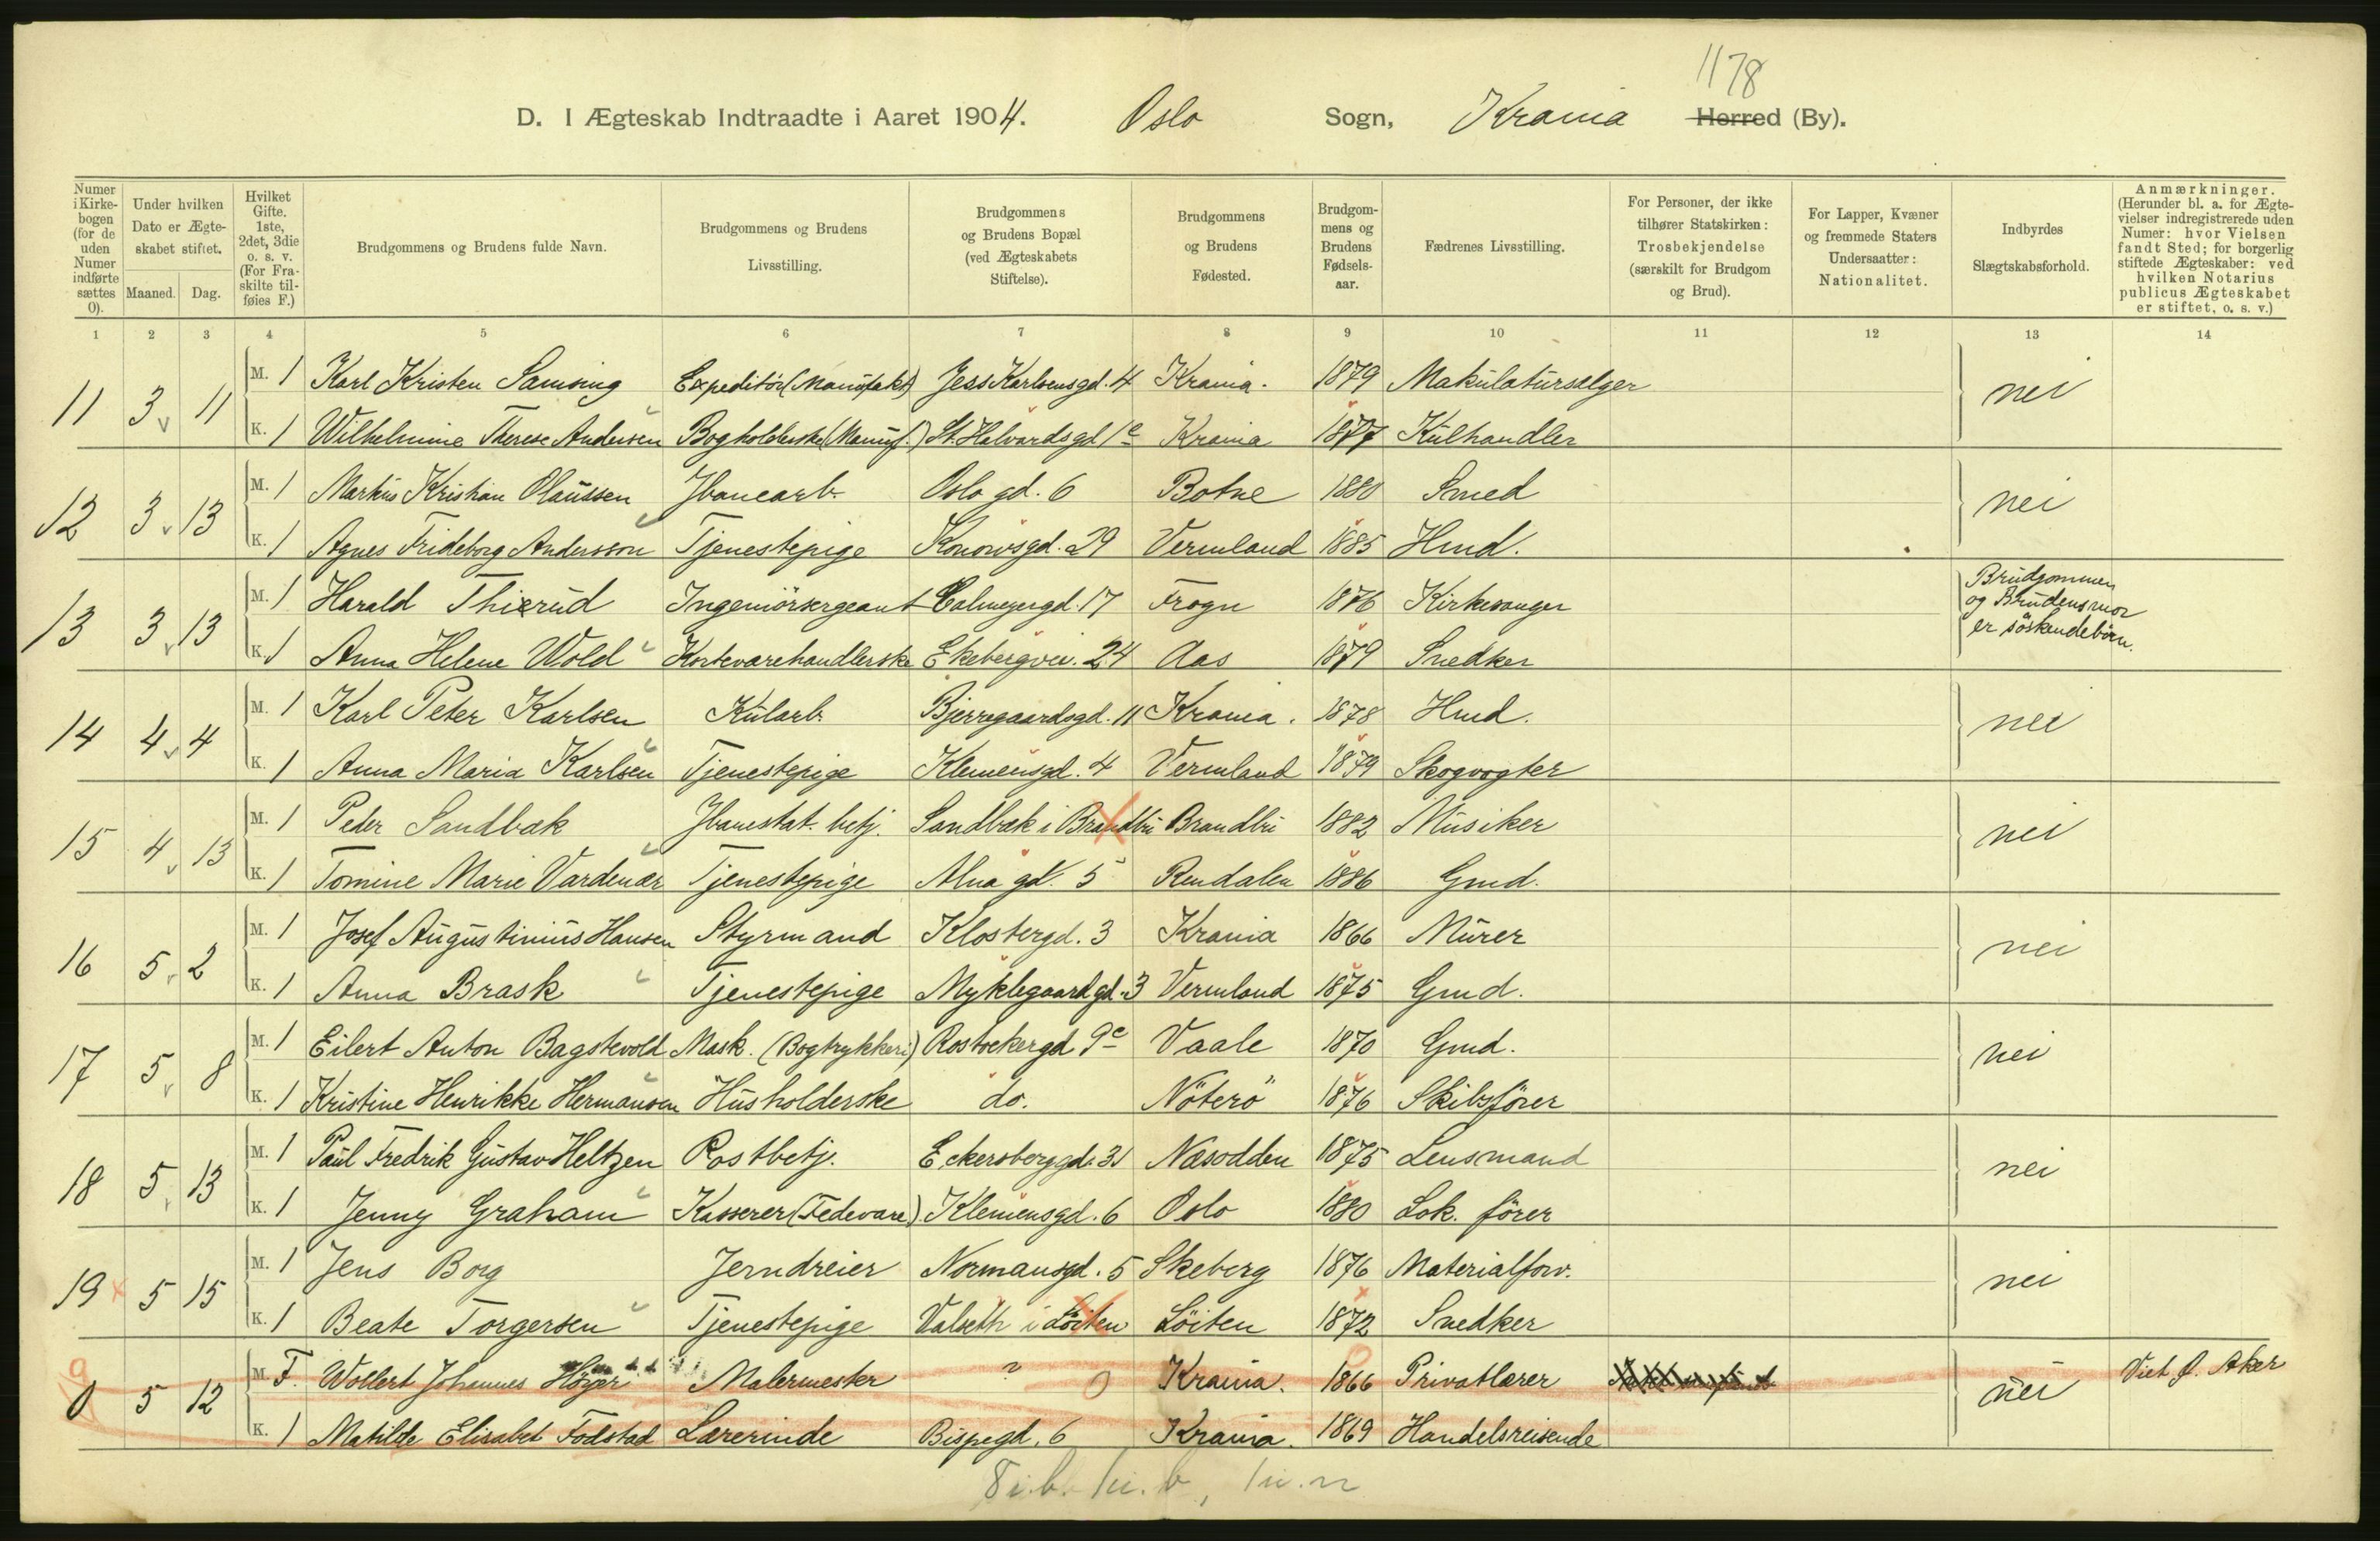 1178
D. I Ægteskab Indtraadte i Aaret 1904. Oslo Sogn, Krania Herred (By).
Numer i Kirkebogen (for de uden Numer indførte sættes 0). Under hvilken Dato er Ægteskabet stiftet. Maaned. Dag. Hvilket Gifte. 1ste, 2det, 3die o. s. v. (For Fraskilte tilføies F.) Brudgommens og Brudens fulde Navn. Brudgommens og Brudens Livsstilling. Brudgommens og Brudens Bopæl (ved Ægteskabets Stiftelse). Brudgommens og Brudens Fødested. Brudgommens og Brudens Fødselsaar. Fædrenes Livsstilling. For Personer, der ikke tilhører Statskirken: Trosbekjendelse (særskilt for Brudgom og Brud). For Lapper, Kvæner og fremmede Staters Undersaatter: Nationalitet. Indbyrdes Slægtskabsforhold. Anmærkninger. (Herunder bl. a. for Ægtevielser indregistrerede uden Numer: hvor Vielsen fandt Sted; for borgerlig stiftede Ægteskaber: ved hvilken Notarius publicus Ægteskabet er stiftet, o. s. v.)
1 2 3 4 5 6 7 8 9 10 11 12 13 14
11 3 11 M. 1 Karl Kristen Samsing Expeditör (Manufakt) Jess Karlsensgd. 4 Krania. 1879 Makulatursælger nei
K. 1 Wilhelmine Therese Andersen Bogholderske (Manuf.) St. Halvardsgd 1c Krania 1877 Kulhandler
12 3 13 M. 1 Markus Kristian Olaussen Jbanearb. Oslo gd. 6 Botne 1880 Smed nei
K. 1 Agnes Frideborg Andersson Tjenestepige Konowsgd. 29 Vermland 1885 Hmd.
13 3 13 M. 1 Harald Thierud Ingeniörsergeant Calmeyergd. 17 Frogn 1876 Kirkesanger Brudgommen og Brudens mor er söskendebörn.
K. 1 Anna Helene Wold Kortevarehandlerske Ekebergvei. 24 Aas 1879 Snedker
14 4 4 M. 1 Karl Peter Karlsen Kularb. Bjerregaardsgd. 11 Krania. 1878 Hmd. nei
K. 1 Anna Maria Karlsen Tjenestepige Klemensgd. 4 Vermland 1879 Skogvogter
15 4 13 M. 1 Peder Sandbæk Jbanestat. betj. Sandbæk i Brandbu Brandbu 1882 Musiker nei
K. 1 Tomine Marie Vardenær Tjenestepige Alna gd. 5 Rendalen 1886 Gmd.
16 5 2 M. 1 Josef Augustinius Hansen Styrmand Klostergd. 3 Krania 1866 Murer nei
K. 1 Anna Brask Tjenestepige Myklegaardgd. 3 Vermland 1875 Gmd.
17 5 8 M. 1 Eilert Anton Bagstevold Mask. (Bogtrykkeri) Rostockergd 9c Vaale 1870 Gmd. nei
K. 1 Kristine Henrikke Hermansen Husholderske do. Nöterö 1876 Skibsförer
18 5 13 M. 1 Paul Fredrik Gustav Heltzen Postbetj. Eckersberggd. 31 Næsodden 1875 Lensmand nei
K. 1 Jenny Graham Kasserer (Fedevare) Klemensgd. 6 Oslo 1880 Lok. förer
19 5 15 M. 1 Jens Borg Jerndreier Normansgd. 5 Skeberg 1876 Materialforv. nei
K. 1 Beate Torgersen Tjenestepige Valseth i Löiten Löiten 1872 Snedker
0 5 12 M. F. Wollert Johannes Malermester ? 0 Krania. 1866 Privatlærer nei Viet Ø. Aker
K. 1 Matilde Elisabet Fodstad Lærerinde Bispegd. 6 Krania. 1869 Handelsreisende
8 i.b. 1 u.b, 1 u.n